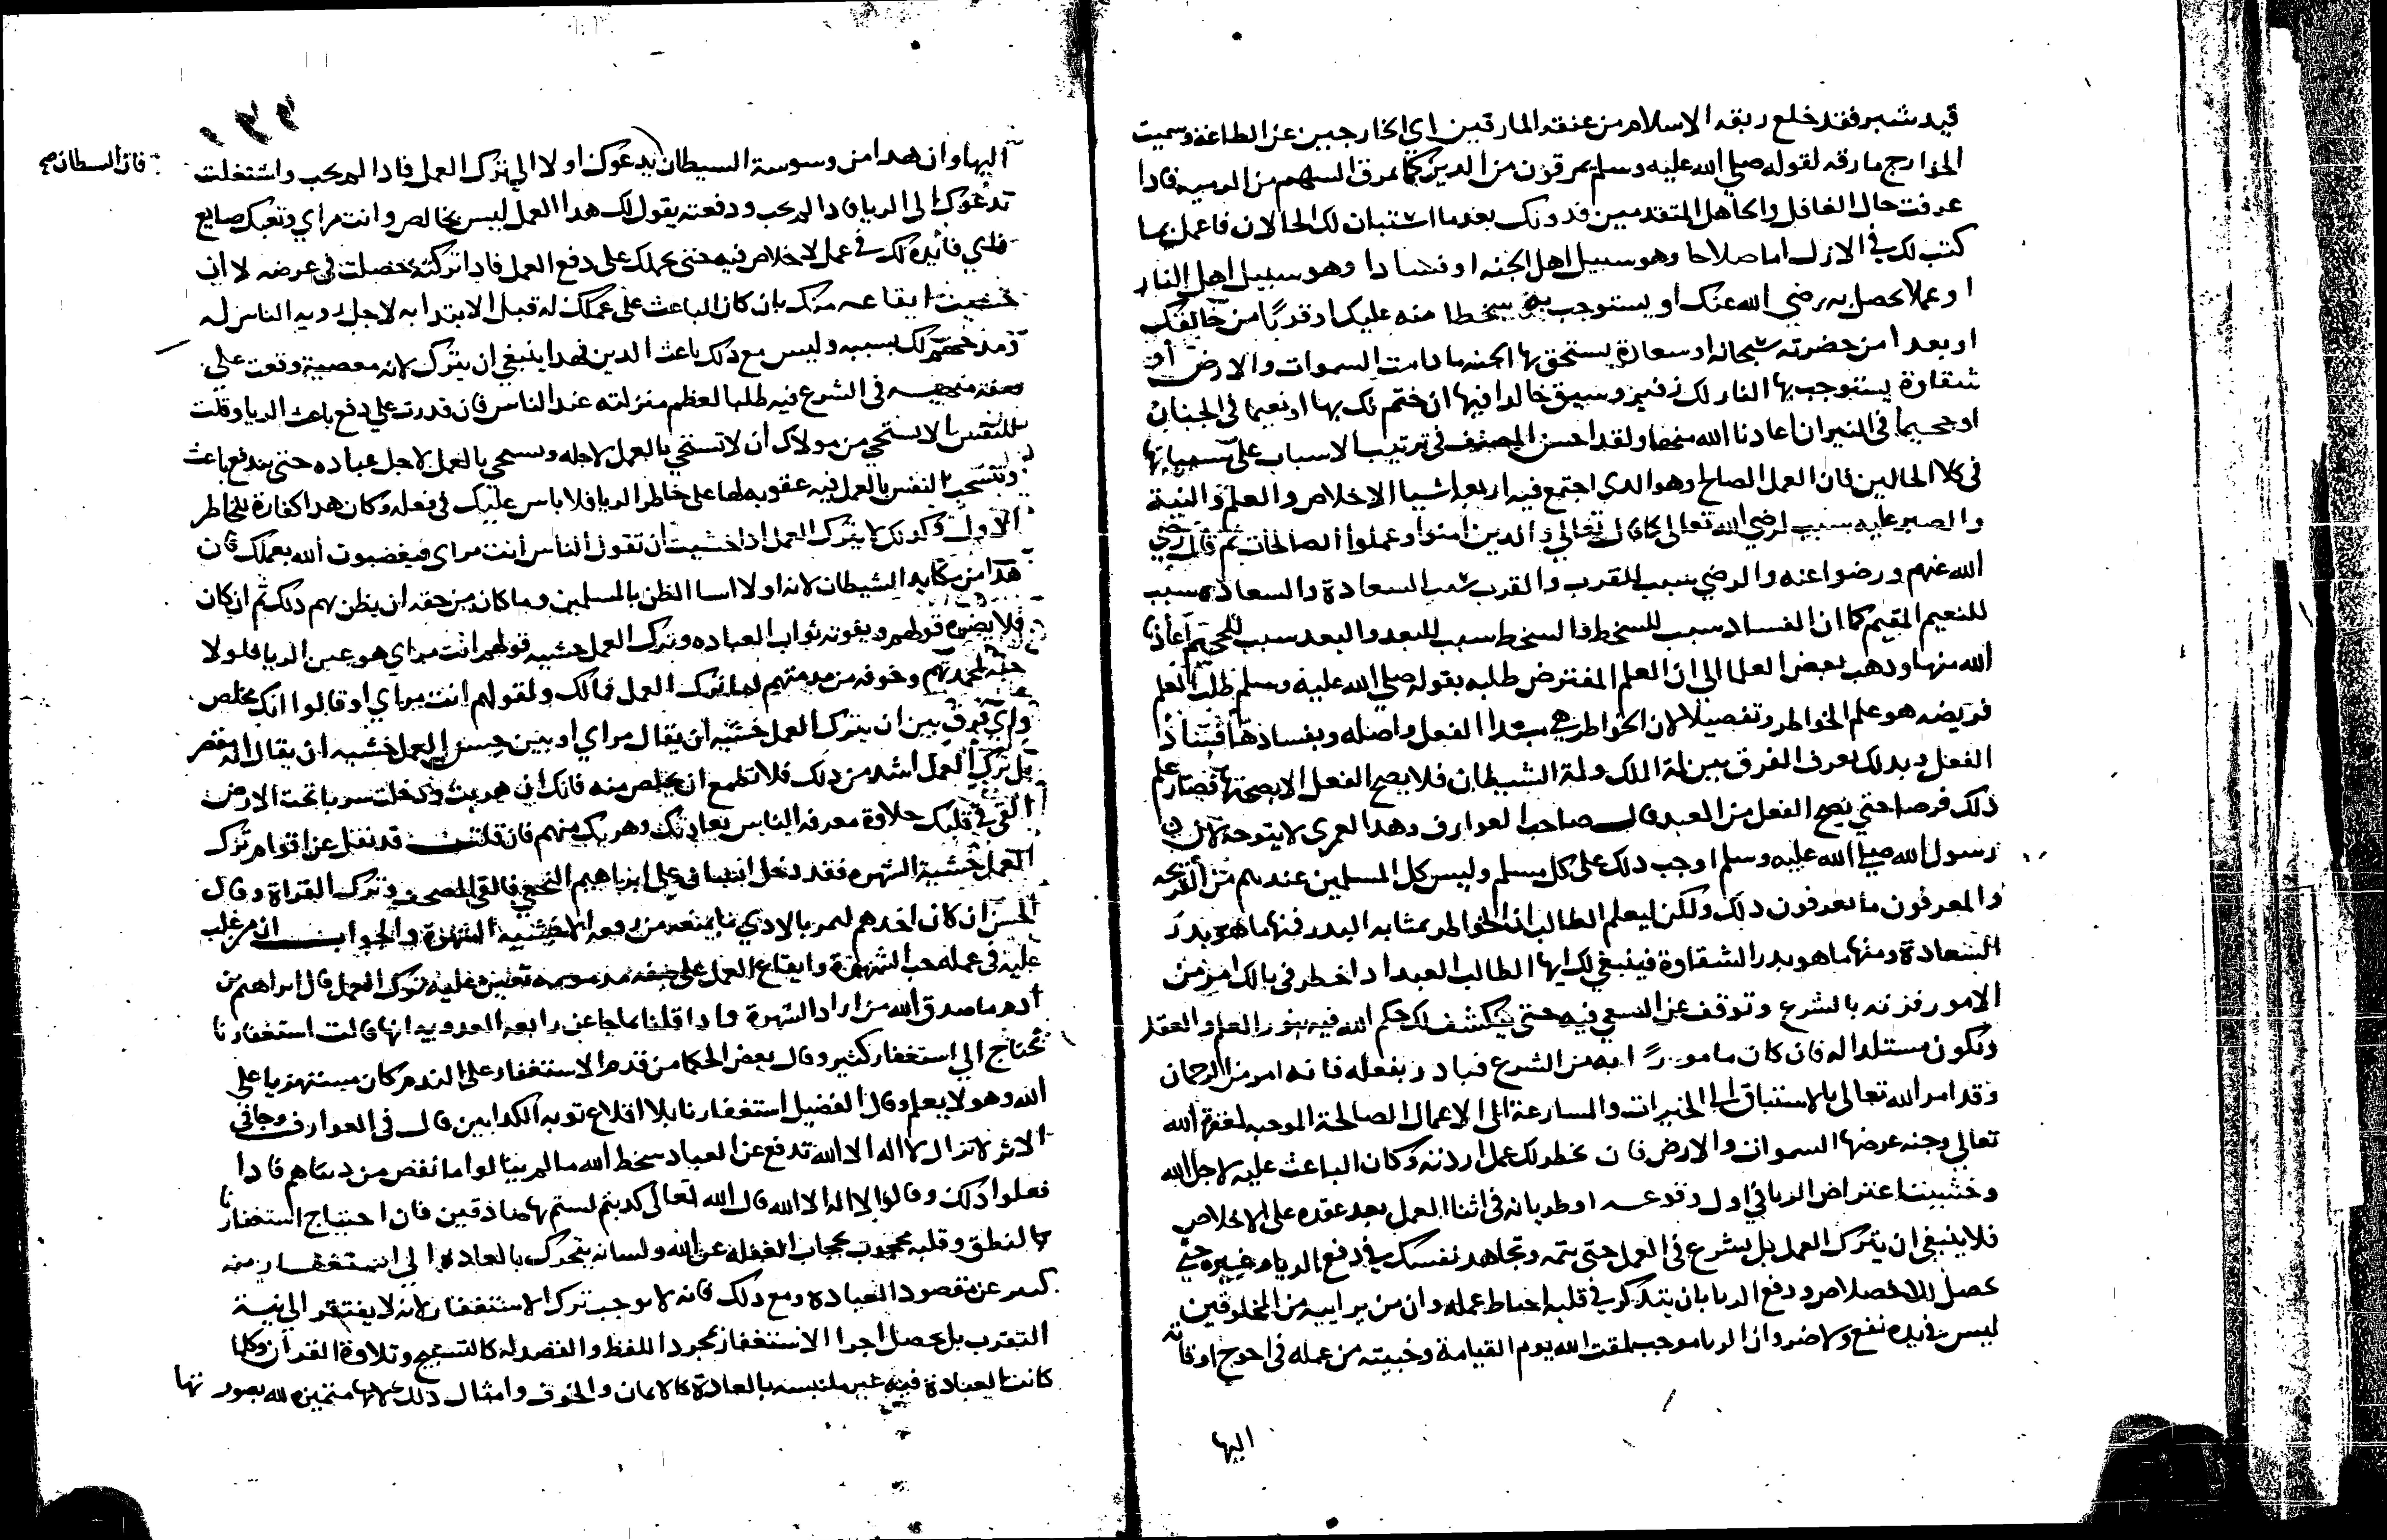 قيد شبر فقد خلع ربقه الاسلام من عنقه المارقين اي الخارجين عن الطاعة وسميت
الخوارج مارقه لقوله صلي الله عليه وسلم يمرقون من الدين كما يمرق السهم من الرميه فادا
عرفت حال الغافل والجاهل المتقدمين فدونك بعد ما استبان لك الحالان فاعمل بما
كتب لك في الازل اما صلاحا وهو سبيل اهل الجنه او فسادا وهو سبيل اهل النار
او عملا يحصل به رضي الله عنك او يستوجب به سخطا منه عليك او قربا من خالقك
او بعدا من حضرته سبحانه او سعادة يستحق بها الجنه ما دامت السموات والارض او
شقاوة يستوجب بها النار لك زفير وسيق خالدا فيها ان ختم لك بها او نعيما في الجنان
او جحيما في النيران اعادنا الله منها ولقد احسن المصنف في ترتيب الاسباب على مسبباتها
في كلا الحالين فان العمل الصالح وهو الدي اجتمع فيه اربعه اشيا الاخلاص والعلم والنية
والصبر عليه سبب لرضي الله تعالى كما قال تعالي والدين امنوا وعملوا الصالحات ثم قال رضي
الله عنهم ورضوا عنه والرضي سبب القرب والقرب سبب السعادة والسعاده سبب
للنعيم المقيم كما ان الفساد سبب للسخط والسخط سبب للبعد والبعد سبب للجحيم اعادنا
الله منها ودهب بعض العلما الي ان العلم المفترض طلبه بقوله صلي الله عليه وسلم طلب العلم
فريضه هو علم الخواطر وتفصيلا لان الخواطر هي مبتدا الفعل واصله وبفسادها فساد
الفعل وبدلك يعرف الفرق بين لمة الملك ولمة الشيطان فلا يصح الفعل الا بصحتها فصار علم
ذلك فرضا حتي يصح الفعل من العبد قال صاحب العوارف وهدا لعمري لا يتوجه لان
رسول الله صلي الله عليه وسلم اوجب دلك على كل مسلم وليس كل المسلمين عندهم من القريحه
والمعرفون ما يعرفون دلك ولكن ليعلم الطالب ان الخواطر بمثابه البدر فمنها ما هو بدر
السعادة ومنها ما هو بدر الشقاوة فينبغي لك ايها الطالب العبد ادا خطر في بالك امر من
الامور فزنه بالشرع وتوقف عن السعي فيه حتي ينكشف لك حكم الله فيه بنور العلم والعقل
وتكون مستلدا له فان كان مامورا به من الشرع فبادر بفعله فانه امر من الرحمان
وقد امر الله تعالى بالاستباق الي الخيرات والمسارعة الى الاعمال الصالحة الموجبه لمغفرة الله
تعالي وجنه عرضها السموات والارض فان خطر لك عمل اردته وكان الباعث عليه لاجل الله
وخشيت اعتراض الريا في اول وقوعه او طريانه في اثنا العمل بعد عقده على الاخلاص
فلا ينبغي ان يترك العمل بل يشرع في العمل حتى يتمه وتجاهد نفسك في دفع الرياء وغيره حتي
يحصل الاخلاص ودفع الريا بان يتذكر في قلبه احباط عمله وان من يراييه من المخلوقين
ليس في يده نفع ولا ضر وان الريا موجب لمقت الله يوم القيامة وخيبته من عمله في احوج اوقاته
اليها
اليها وان هدا من وسوسة السيطان يدعوك اولا الي ترك العمل فادا لم يجب واشتغلت
فان السطان صح
تدعوك الى الريا فادا لم يجب ودفعته يقول لك هدا العمل ليس بخالص وانت مراي وتعبك ضايع
فاي فائدة لك في عمل لا خلاص فيه حتى يحملك على دفع العمل فادا تركته حصلت في غرضه لا ان
خشيت ايقاعه منك بان كان الباعث على عملك له قبل الابتدا به لاجل رويه الناس له
لك بسببه وليس مع ذلك باعث الدين فهدا ينبغي ان يترك لانه معصية وقعت على
في الشرع فيه طلبا لعظم منزلته عند الناس فان قدرت علي دفع باعث الريا وقلت
للنفس الا تستحي من مولاك ان لا تستخي بالعمل لاجله وتسخي بالعمل لاجل عباده حتى يندفع باعث
النفس بالعمل فيه عقوبه لها على خاطر الريا فلا باس عليك في فعله وكان هدا كفارة للخاطر
الاول وكدلك لا يترك العمل ادا خشيت ان تقول الناس انت مراي فيغضبوت الله بعملك فان
هدا من مكايد الشيطان لانه اولا اسا الظن بالمسلمين وما كان من حقه ان يظن بهم دلك ثم ان كان
فلا يضره قولهم ويفوته ثواب العباده وترك العمل خشيه قولهم انت مراي هو عين الريا فلولا
حبه لمحمدتهم وخوفه من مدمتهم لما ترك العمل فما لك ولقولهم انت مراي او قالوا انك مخلص
واي فرق بين ان يترك العمل خشية ان يقال مراي او بين حسن العمل خشيه ان يقال انه مقصر
بل ترك العمل اشد من دلك فلا تطمع ان يخلص منه فانك ان هربت ودخلت سربا تحت الارض
القى في قلبك حلاوة معرفه الناس وهربك منهم فان قلت قد نقل عن اقوام ترك
العمل خشية الشهره فقد دخل انسان علي ابراهيم النخعي فالقى المصحف وترك القراة وقال
الحسن ان كان احدهم ليمر بالادي ما يمنعه من رفعه الا خشيه الشهرة والجواب ان من غلب
عليه في عمله حب الشهرة وايقاع العمل على صفه مدمومه تعين عليه ترك العمل قال ابراهيم بن
ادهم ما صدق الله من اراد الشهرة وادا قلنا بما جا عن رابعه العدويه انها قالت استغفارنا
تحتاج الي استغفار كثير وقال بعض الحكما من قدم الاستغفار على الندم كان مستهزيا على
الله وهو لا يعلم وقال الفضيل استغفارنا بلا اقلاع توبه الكدابين قال في العوارف وجا في
الاثر لا تزال لا اله الا الله تدفع عن العباد سخط الله ما لم يبالوا ما نقص من دنياهم فادا
فعلوا ذلك وقالوا لا اله الا الله قال الله تعالى كدبتم لستم بها صادقين فان احتياج استغفارنا
بالنطق وقلبه محجوب بحجاب الغفله عن الله ولسانه يتحرك بالعاده الي استغفار منه
عن مقصود العباده ومع دلك فانه لا يوجب ترك الاستغفار لانه لا يفتقر الي نية
التقرب بل يحصل اجرا الاستغفار بمجرد اللفظ والقصد له كالتسبيح وتلاوة القران وكلما
كانت العبادة فيه غير ملتبسه بالعادة كالايمان والخوف وامثال دلك لانها متميزه لله بصورتها